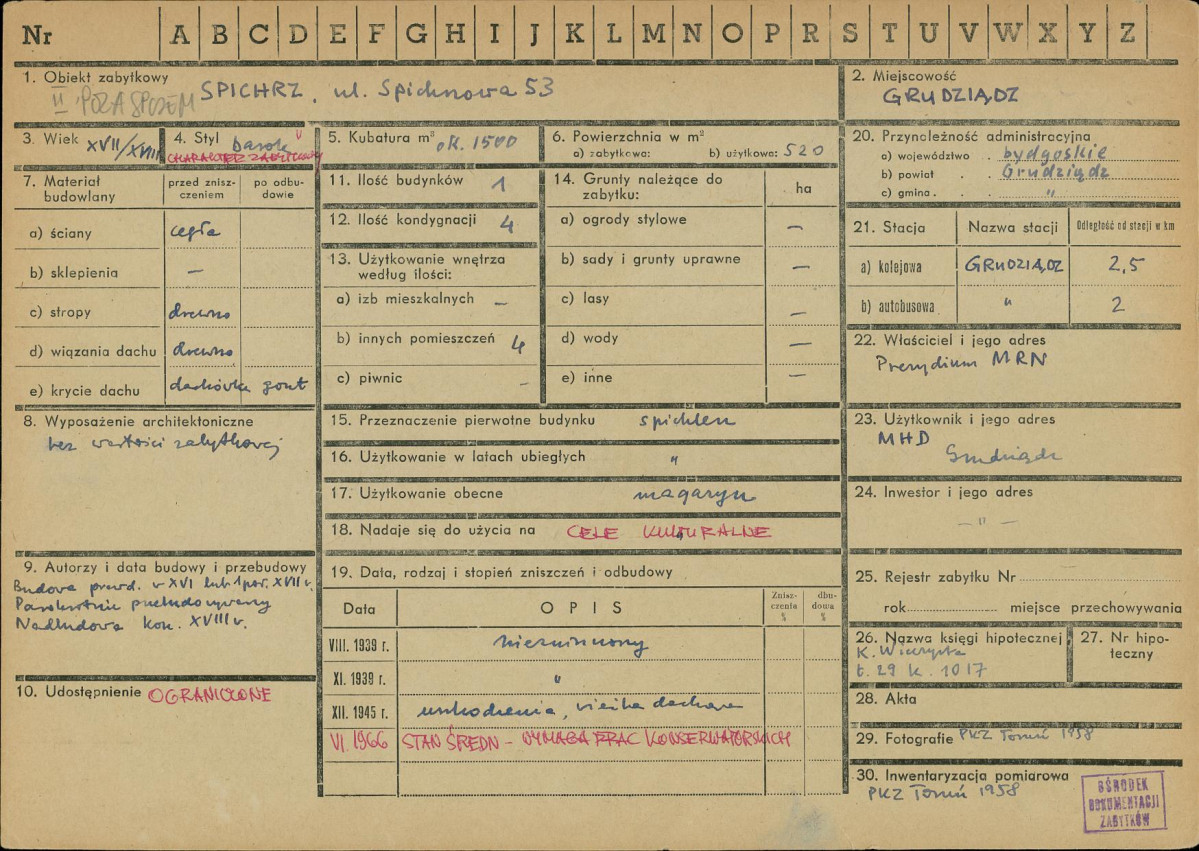 Nr A B C D E F G H I J K L M N O P R S T U V W X Y Z
1. Obiekt zabytkowy
SPICHRZ, ul. Spichrzowa 53
II POZA SPISEM
2. Miejscowość
GRUDZIĄDZ
3. Wiek XVII/XVIII
4. Styl barok
CHARAKTER ZABYTKOWY
5. Kubatura m³ ok. 1500
6. Powierzchnia w m²
a) zabytkowa: b) użytkowa: 520
7. Materiał budowlany
przed zniszczeniem
po odbudowie
a) ściany cegła
b) sklepienia —
c) stropy drewno
d) wiązania dachu drewno
e) krycie dachu dachówka gont
8. Wyposażenie architektoniczne
bez wartości zabytkowej
9. Autorzy i data budowy i przebudowy
Budowa prawd. w XVI lub 1 poł. XVII w.
Parokrotnie przebudowywany
Nadbudowa kon. XVIII w.
10. Udostępnienie OGRANICZONE
11. Ilość budynków 1
12. Ilość kondygnacji 4
13. Użytkowanie wnętrza
według ilości:
a) izb mieszkalnych —
b) innych pomieszczeń 4
c) piwnic -
14. Grunty należące do
zabytku: ha
a) ogrody stylowe —
b) sady i grunty uprawne —
c) lasy —
d) wody —
e) inne —
15. Przeznaczenie pierwotne budynku spichlerz
16. Użytkowanie w latach ubiegłych "
17. Użytkowanie obecne magazyn
18. Nadaje się do użycia na CELE KULTURALNE
19. Data, rodzaj i stopień zniszczeń i odbudowy
Data OPIS Zniszczenia % dbudowa %
VIII. 1939 r. niezniszczony
XI. 1939 r. "
XII. 1945 r. uszkodzenia, więźba dachowa
VI. 1966 STAN ŚREDN – WYMAGA PRAC KONSERWATORSKICH
20. Przynależność administracyjna
a) województwo . bydgoskie
b) powiat . . Grudziądz
c) gmina . . "
21. Stacja Nazwa stacji Odległość od stacji w km
a) kolejowa GRUDZIĄDZ 2,5
b) autobusowa " 2
22. Właściciel i jego adres
Prezydium MRN
23. Użytkownik i jego adres
MHD
Grudziądz
24. Inwestor i jego adres
— " —
25. Rejestr zabytku Nr
rok miejsce przechowywania
26. Nazwa księgi hipotecznej
K. Wieczysta
t. 29 k. 1017
27. Nr hipoteczny
28. Akta
29. Fotografie PKZ Toruń 1958
30. Inwentaryzacja pomiarowa
PKZ Toruń 1958
OŚRODEK
DOKUMENTACJI
ZABYTKÓW